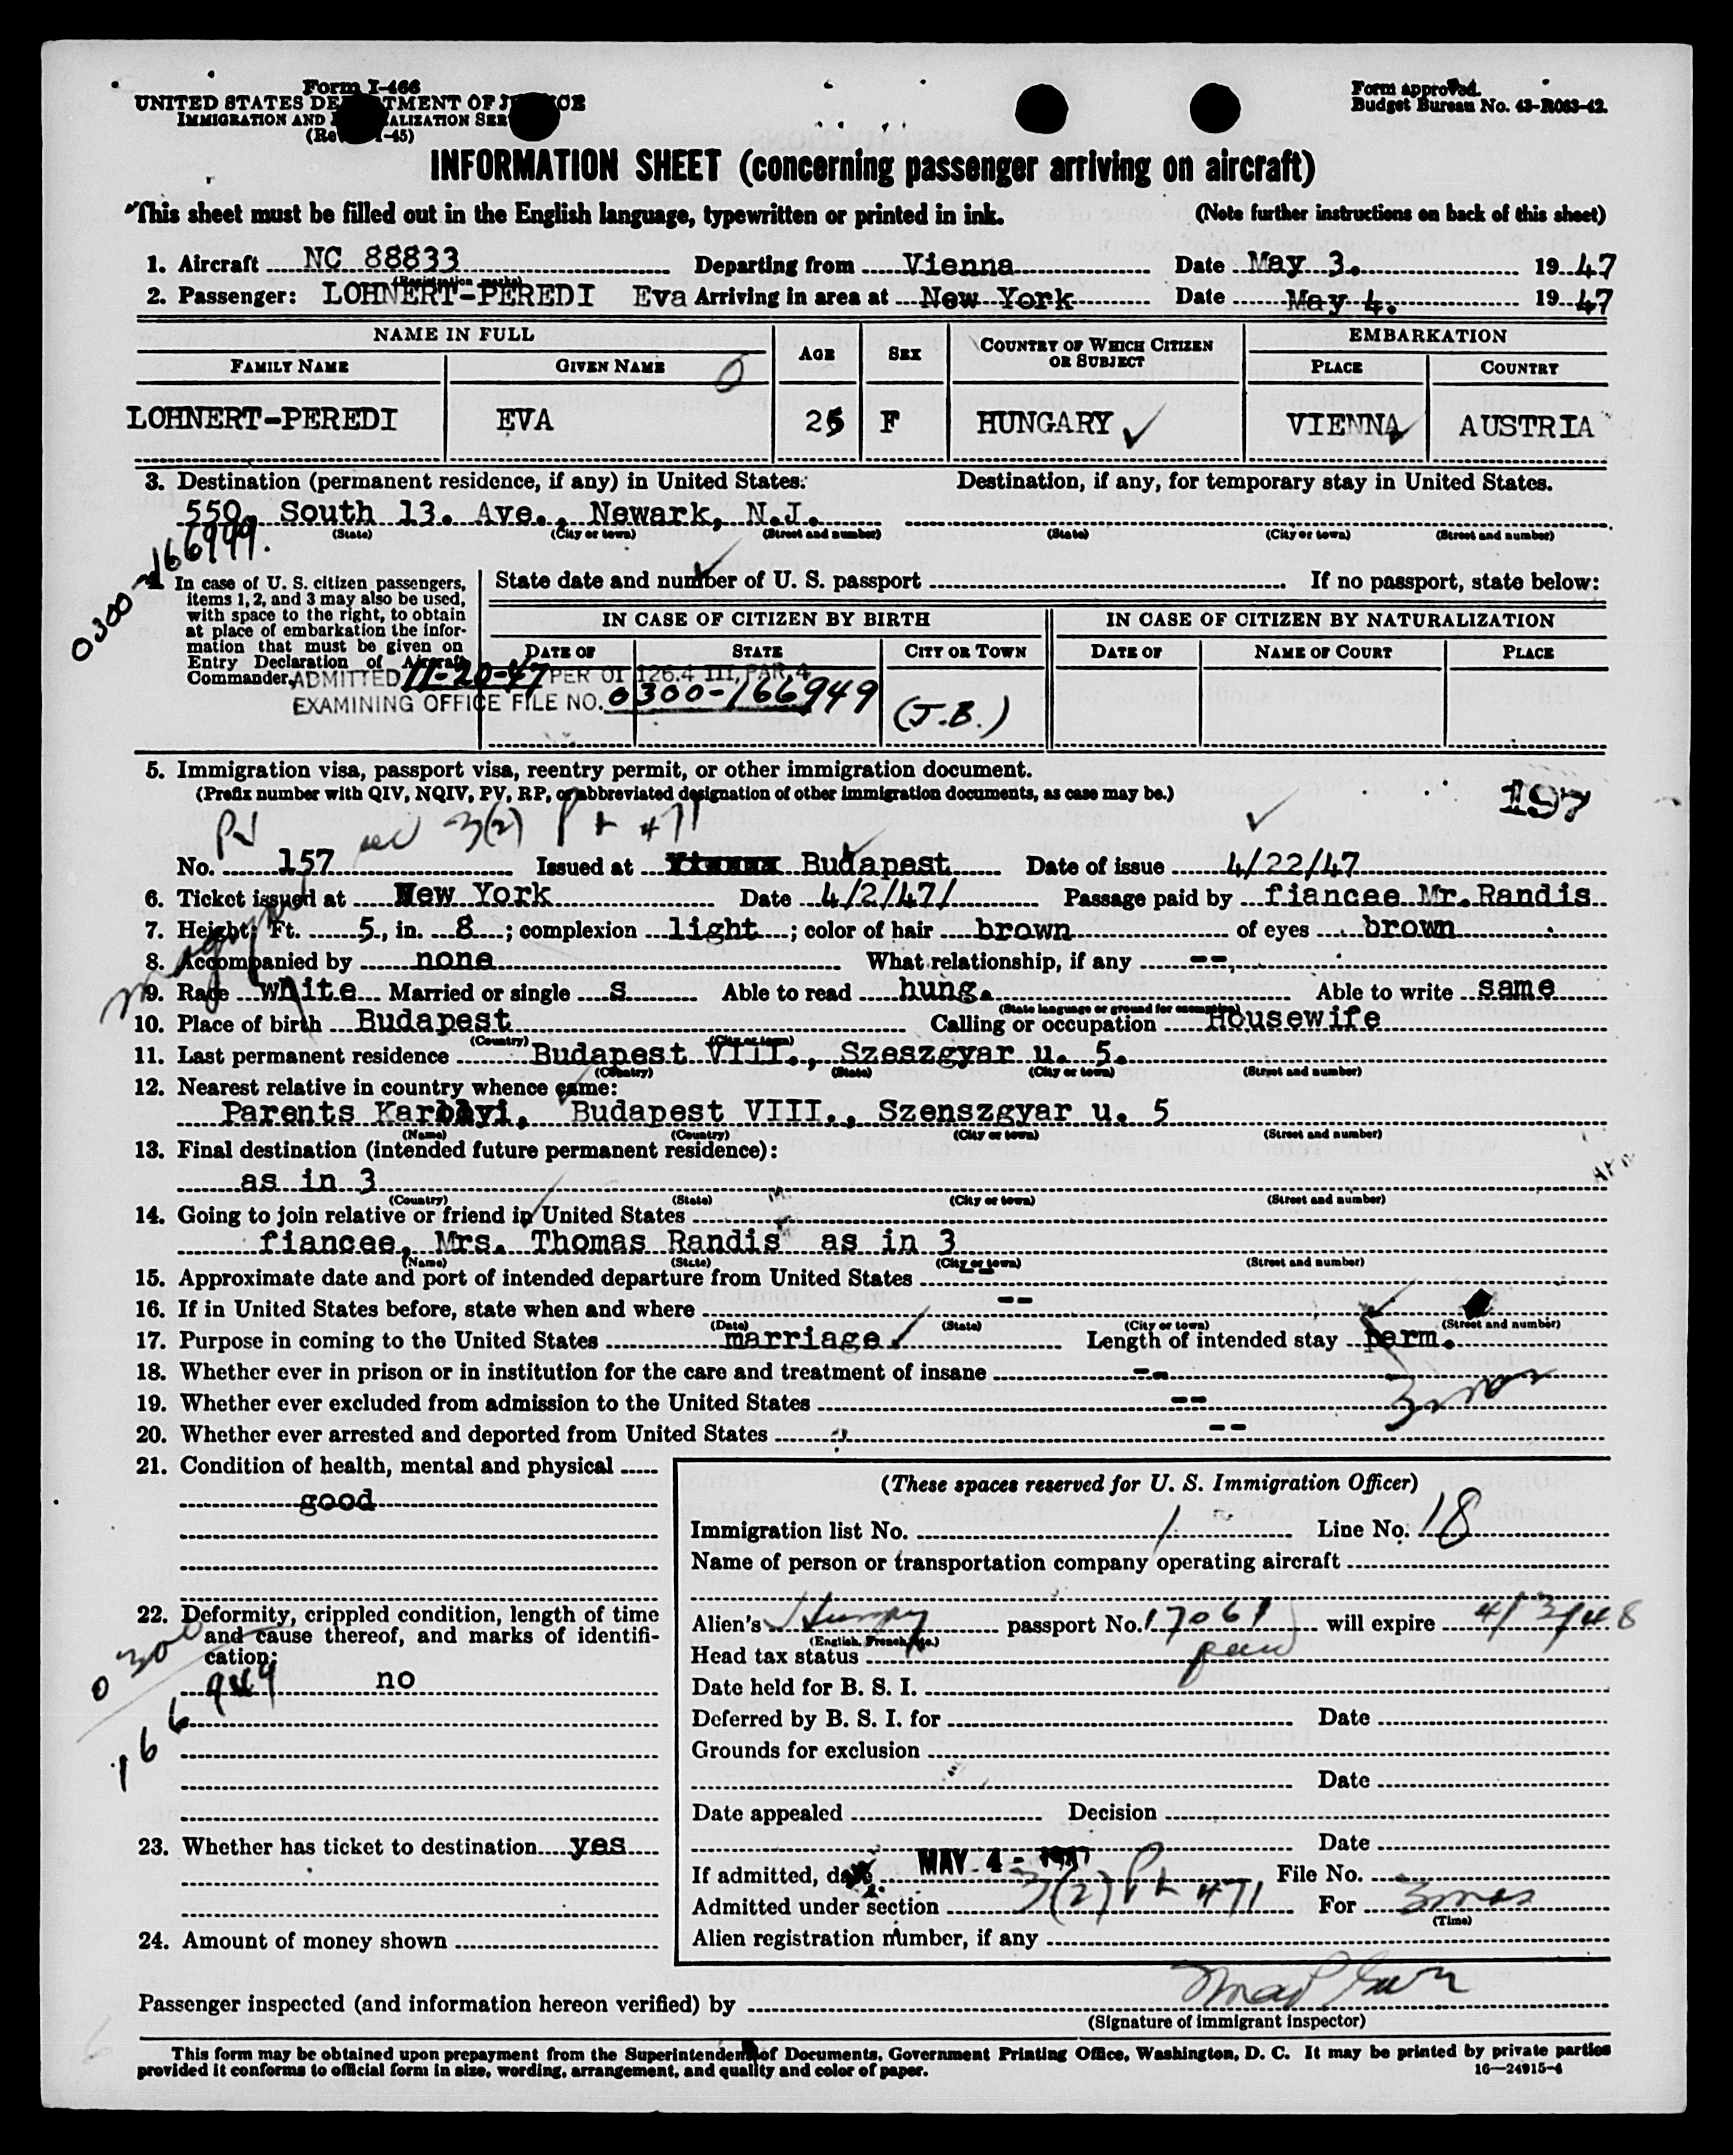 Form I-466
UNITED STATES DEPARTMENT OF JUSTICE
IMMIGRATION AND NATURALIZATION SERVICE
Form approved.
Budget Bureau No. 43-R063-42.
INFORMATION SHEET (concerning passenger arriving on aircraft)
This sheet must be filled out in the English language, typewritten or printed in ink. (Note further instructions on back of this sheet)
1. Aircraft NC 88833 Departing from Vienna Date May 3. 19 47
(Registration marks)
2. Passenger: LOHNERT-PEREDI Eva Arriving in area at New York Date May 4. 19 47
NAME IN FULL AGE SEX COUNTRY OF WHICH CITIZEN OR SUBJECT EMBARKATION
FAMILY NAME GIVEN NAME PLACE COUNTRY
LOHNERT-PEREDI EVA 25 F HUNGARY VIENNA AUSTRIA
3. Destination (permanent residence, if any) in United States: Destination, if any, for temporary stay in United States.
550. South 13. Ave., Newark, N.J.
(State) (City or town) (Street and number) (State) (City or town) (Street and number)
0300-166949.
4. In case of U. S. citizen passengers, items 1, 2, and 3 may also be used, with space to the right, to obtain at place of embarkation the information that must be given on Entry Declaration of Aircraft Commander.
State date and number of U. S. passport If no passport, state below:
IN CASE OF CITIZEN BY BIRTH IN CASE OF CITIZEN BY NATURALIZATION
DATE OF STATE CITY OR TOWN DATE OF NAME OF COURT PLACE
ADMITTED 11-20-47 PER OI 126.4 III, PAR 4
EXAMINING OFFICE FILE NO. 0300-166949 (J.B.)
5. Immigration visa, passport visa, reentry permit, or other immigration document.
(Prefix number with QIV, NQIV, PV, RP, or abbreviated designation of other immigration documents, as case may be.)
197
PV 3(2) Pt 471
No. 157 Issued at Budapest Date of issue 4/22/47
6. Ticket issued at New York Date 4/2/47/ Passage paid by fiancee Mr. Randis
7. Height: Ft. 5, in. 8; complexion light; color of hair brown of eyes brown
8. Accompanied by none What relationship, if any --,
9. Race White Married or single s Able to read hung. Able to write same
(State language or ground for exemption)
10. Place of birth Budapest Calling or occupation Housewife
(Country) (City or town)
11. Last permanent residence Budapest VIII., Szeszgyar u. 5.
(Country) (State) (City or town) (Street and number)
12. Nearest relative in country whence came:
Parents Budapest VIII., Szenszgyar u. 5
(Name) (Country) (City or town) (Street and number)
13. Final destination (intended future permanent residence):
as in 3
(Country) (State) (City or town) (Street and number)
14. Going to join relative or friend in United States
fiancee, Mrs. Thomas Randis as in 3
(Name) (State) (City or town) (Street and number)
15. Approximate date and port of intended departure from United States
16. If in United States before, state when and where --
(Date) (State) (City or town) (Street and number)
17. Purpose in coming to the United States marriage Length of intended stay perm.
18. Whether ever in prison or in institution for the care and treatment of insane --
3 mos
19. Whether ever excluded from admission to the United States --
20. Whether ever arrested and deported from United States --
21. Condition of health, mental and physical
good
22. Deformity, crippled condition, length of time and cause thereof, and marks of identification:
no
0300
166949
23. Whether has ticket to destination yes
24. Amount of money shown
(These spaces reserved for U. S. Immigration Officer)
Immigration list No. 1 Line No. 18
Name of person or transportation company operating aircraft
Alien's Hungary passport No. 17061 will expire 4/3/48
(English, French, etc.)
Head tax status
Date held for B. S. I.
Deferred by B. S. I. for Date
Grounds for exclusion
Date
Date appealed Decision
Date
If admitted, date MAY 4 - 1947 File No.
Admitted under section 3(2) Pt 471 For 3 mos
(Time)
Alien registration number, if any
Passenger inspected (and information hereon verified) by
(Signature of immigrant inspector)
This form may be obtained upon prepayment from the Superintendent of Documents, Government Printing Office, Washington, D. C. It may be printed by private parties
provided it conforms to official form in size, wording, arrangement, and quality and color of paper. 16—24915-4